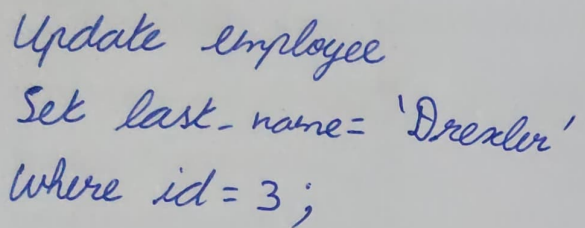 Update employee
Set last_name= 'Drexler'
Where id = 3;